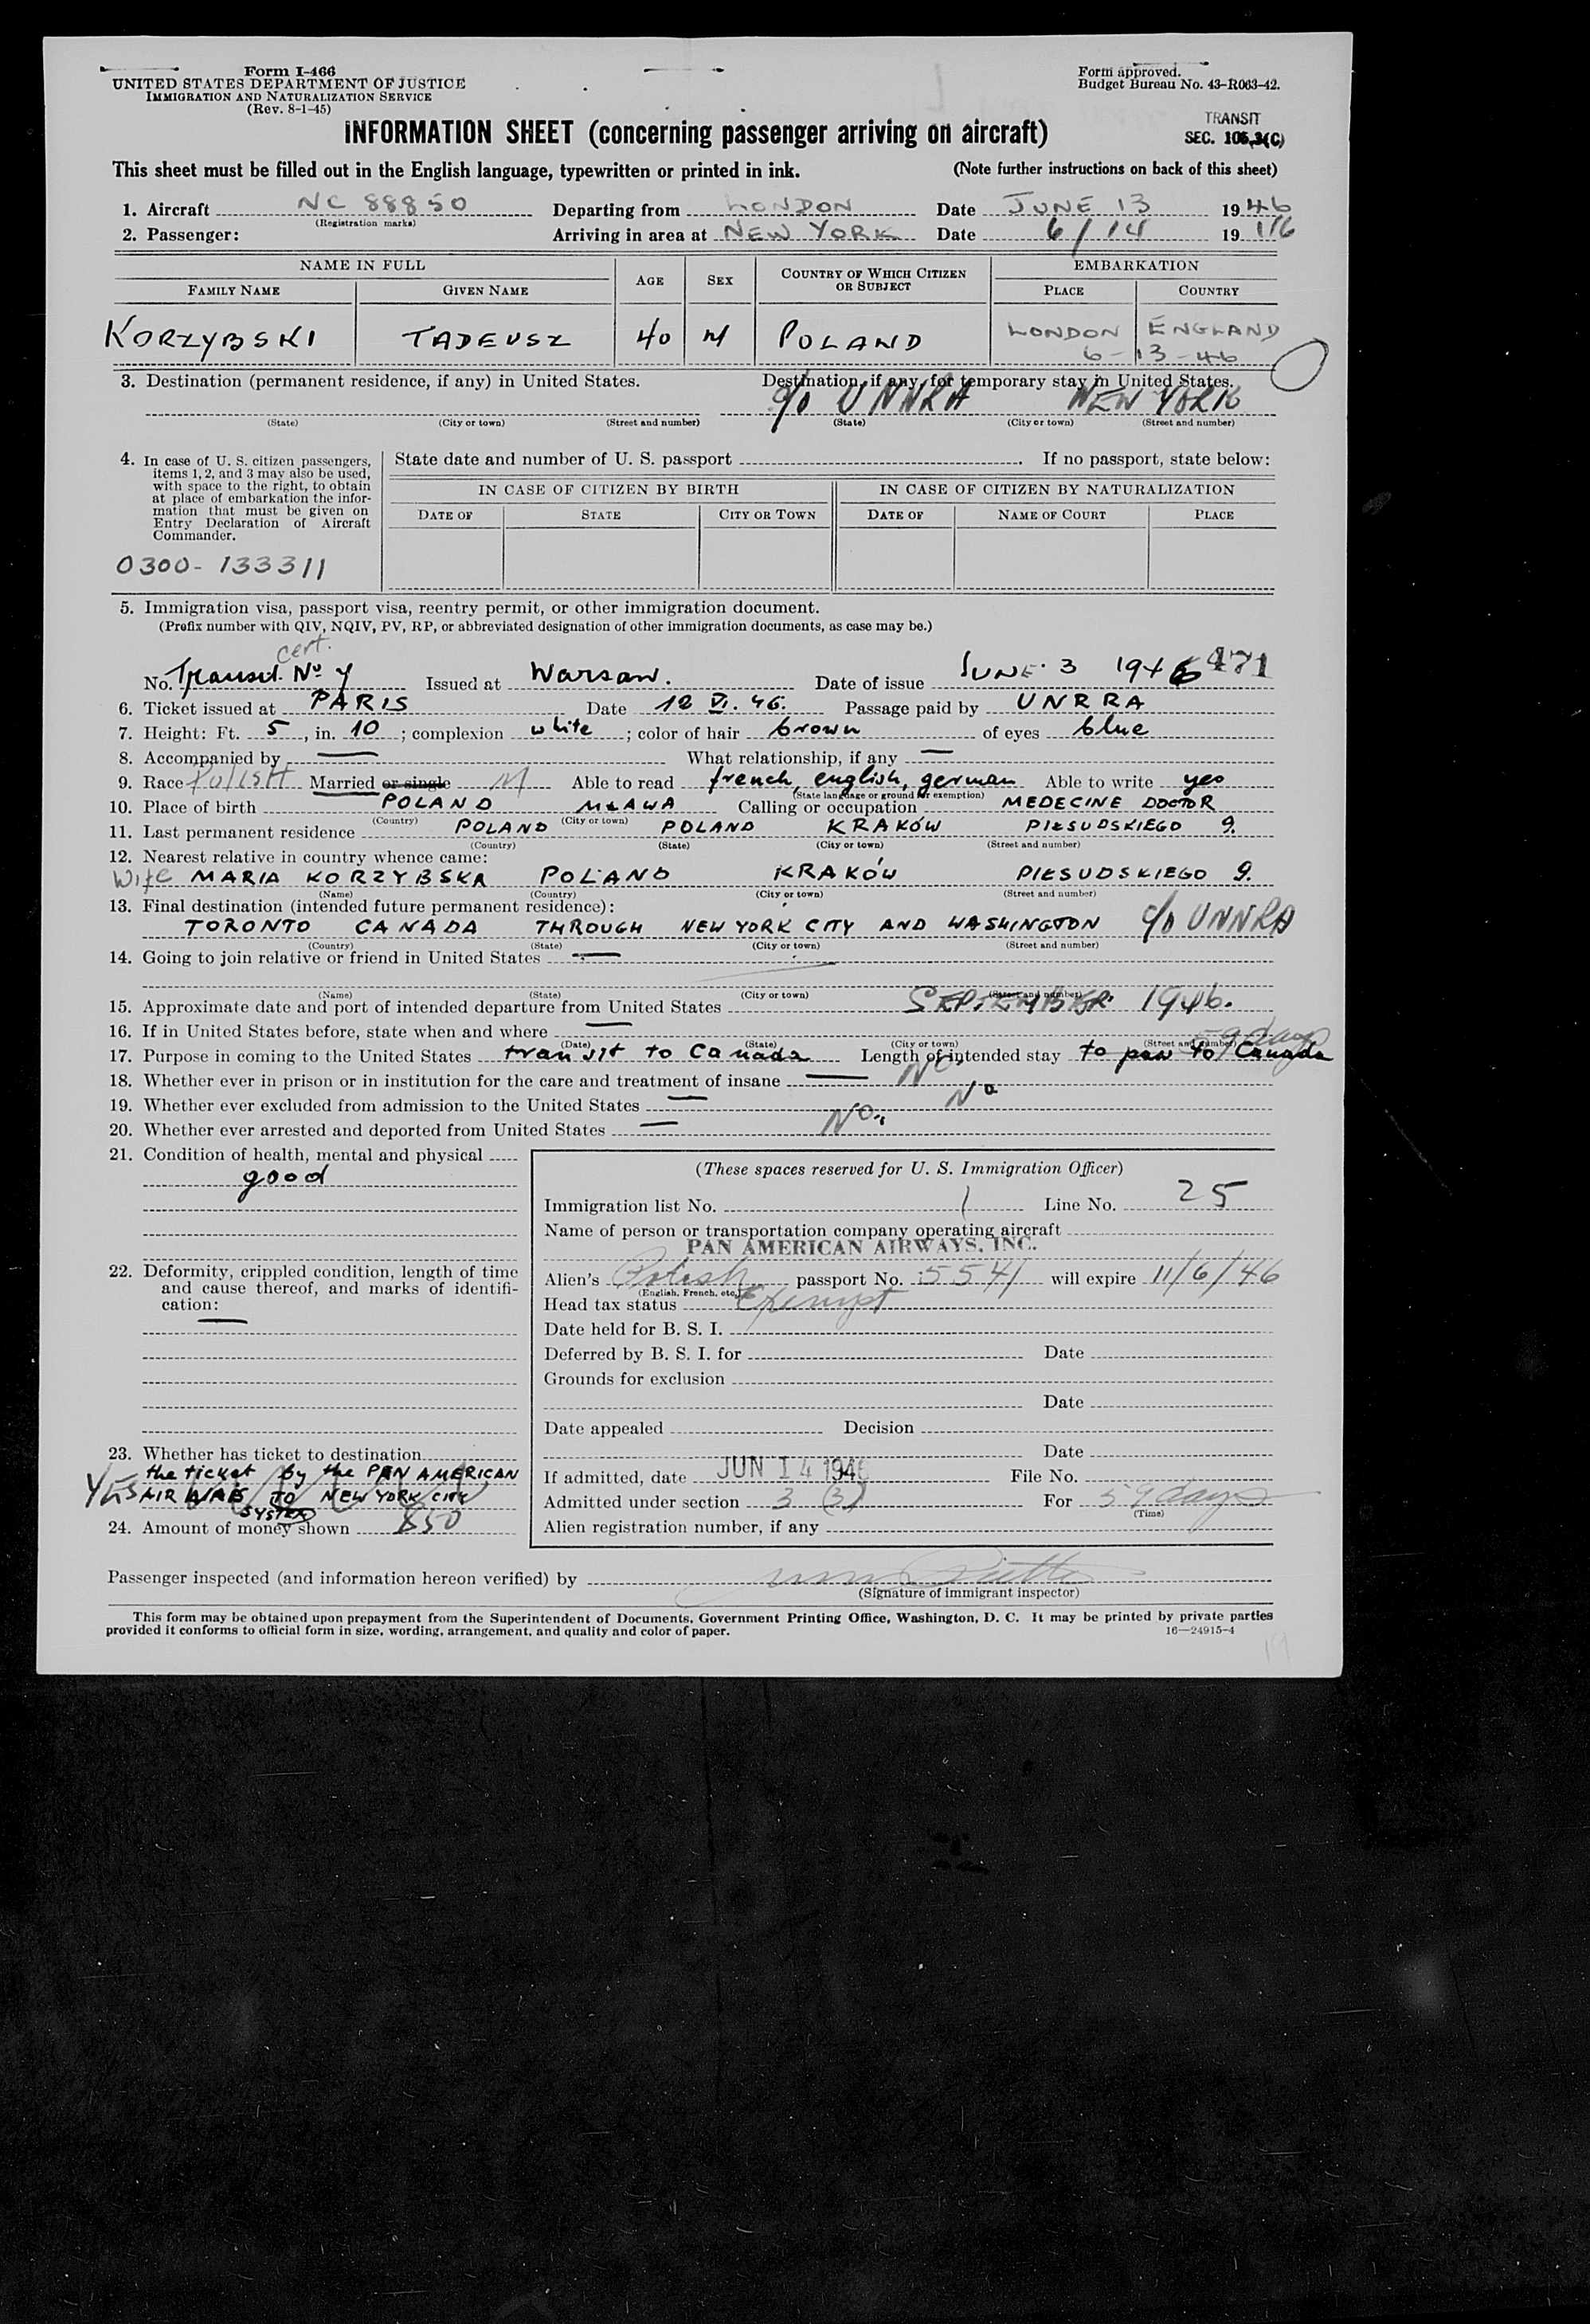 Form I-466
UNITED STATES DEPARTMENT OF JUSTICE
IMMIGRATION AND NATURALIZATION SERVICE
(Rev. 8-1-45)
Form approved.
Budget Bureau No. 43-R063-42.
TRANSIT
SEC. 106.3(C)
INFORMATION SHEET (concerning passenger arriving on aircraft)
This sheet must be filled out in the English language, typewritten or printed in ink. (Note further instructions on back of this sheet)
1. Aircraft NC 88850 Departing from LONDON Date JUNE 13 1946
(Registration marks)
2. Passenger: Arriving in area at NEW YORK Date 6/14 19
NAME IN FULL AGE SEX COUNTRY OF WHICH CITIZEN OR SUBJECT EMBARKATION
FAMILY NAME GIVEN NAME PLACE COUNTRY
KORZYBSKI TADEUSZ 40 M POLAND LONDON ENGLAND
6-13-46
3. Destination (permanent residence, if any) in United States. Destination, if any, for temporary stay in United States.
c/o UNNRA NEW YORK
(State) (City or town) (Street and number) (State) (City or town) (Street and number)
4. In case of U. S. citizen passengers, items 1, 2, and 3 may also be used, with space to the right, to obtain at place of embarkation the information that must be given on Entry Declaration of Aircraft Commander.
State date and number of U. S. passport . If no passport, state below:
IN CASE OF CITIZEN BY BIRTH IN CASE OF CITIZEN BY NATURALIZATION
DATE OF STATE CITY OR TOWN DATE OF NAME OF COURT PLACE
0300-133311
5. Immigration visa, passport visa, reentry permit, or other immigration document.
(Prefix number with QIV, NQIV, PV, RP, or abbreviated designation of other immigration documents, as case may be.)
cert.
No. Transit. No 7 Issued at Warsaw. Date of issue JUNE 3 1946 471
6. Ticket issued at PARIS Date 12 VI. 46. Passage paid by UNRRA
7. Height: Ft. 5, in. 10; complexion white; color of hair brown of eyes blue
8. Accompanied by — What relationship, if any —
9. Race Polish Married or single M Able to read french, english, german Able to write yes
(State language or ground for exemption)
10. Place of birth POLAND MŁAWA Calling or occupation MEDECINE DOCTOR
(Country) (City or town)
11. Last permanent residence POLAND POLAND KRAKÓW PIŁSUDSKIEGO 9.
(Country) (State) (City or town) (Street and number)
12. Nearest relative in country whence came:
Wife MARIA KORZYBSKA POLAND KRAKÓW PIŁSUDSKIEGO 9.
(Name) (Country) (City or town) (Street and number)
13. Final destination (intended future permanent residence):
TORONTO CANADA THROUGH NEW YORK CITY AND WASHINGTON c/o UNNRA
(Country) (State) (City or town) (Street and number)
14. Going to join relative or friend in United States —
(Name) (State) (City or town) (Street and number)
15. Approximate date and port of intended departure from United States SEPTEMBER 1946.
16. If in United States before, state when and where —
(Date) (State) (City or town) (Street and number)
59 days
17. Purpose in coming to the United States transit to Canada Length of intended stay to pass to Canada
18. Whether ever in prison or in institution for the care and treatment of insane — No
19. Whether ever excluded from admission to the United States — No
20. Whether ever arrested and deported from United States — No.
21. Condition of health, mental and physical
good
22. Deformity, crippled condition, length of time and cause thereof, and marks of identification:
—
23. Whether has ticket to destination
YES the ticket by the PAN AMERICAN
AIR WAYS TO NEW YORK CITY
SYSTEM
24. Amount of money shown $50
(These spaces reserved for U. S. Immigration Officer)
Immigration list No. 1 Line No. 25
Name of person or transportation company operating aircraft
PAN AMERICAN AIRWAYS, INC.
Alien's Polish passport No. 5541 will expire 11/6/46
(English, French, etc.)
Head tax status Exempt
Date held for B. S. I.
Deferred by B. S. I. for Date
Grounds for exclusion
Date
Date appealed Decision
Date
If admitted, date JUN 14 1946 File No.
Admitted under section 3 (3) For 59 days
(Time)
Alien registration number, if any
Passenger inspected (and information hereon verified) by
(Signature of immigrant inspector)
This form may be obtained upon prepayment from the Superintendent of Documents, Government Printing Office, Washington, D. C. It may be printed by private parties
provided it conforms to official form in size, wording, arrangement, and quality and color of paper. 16—24915-4
19